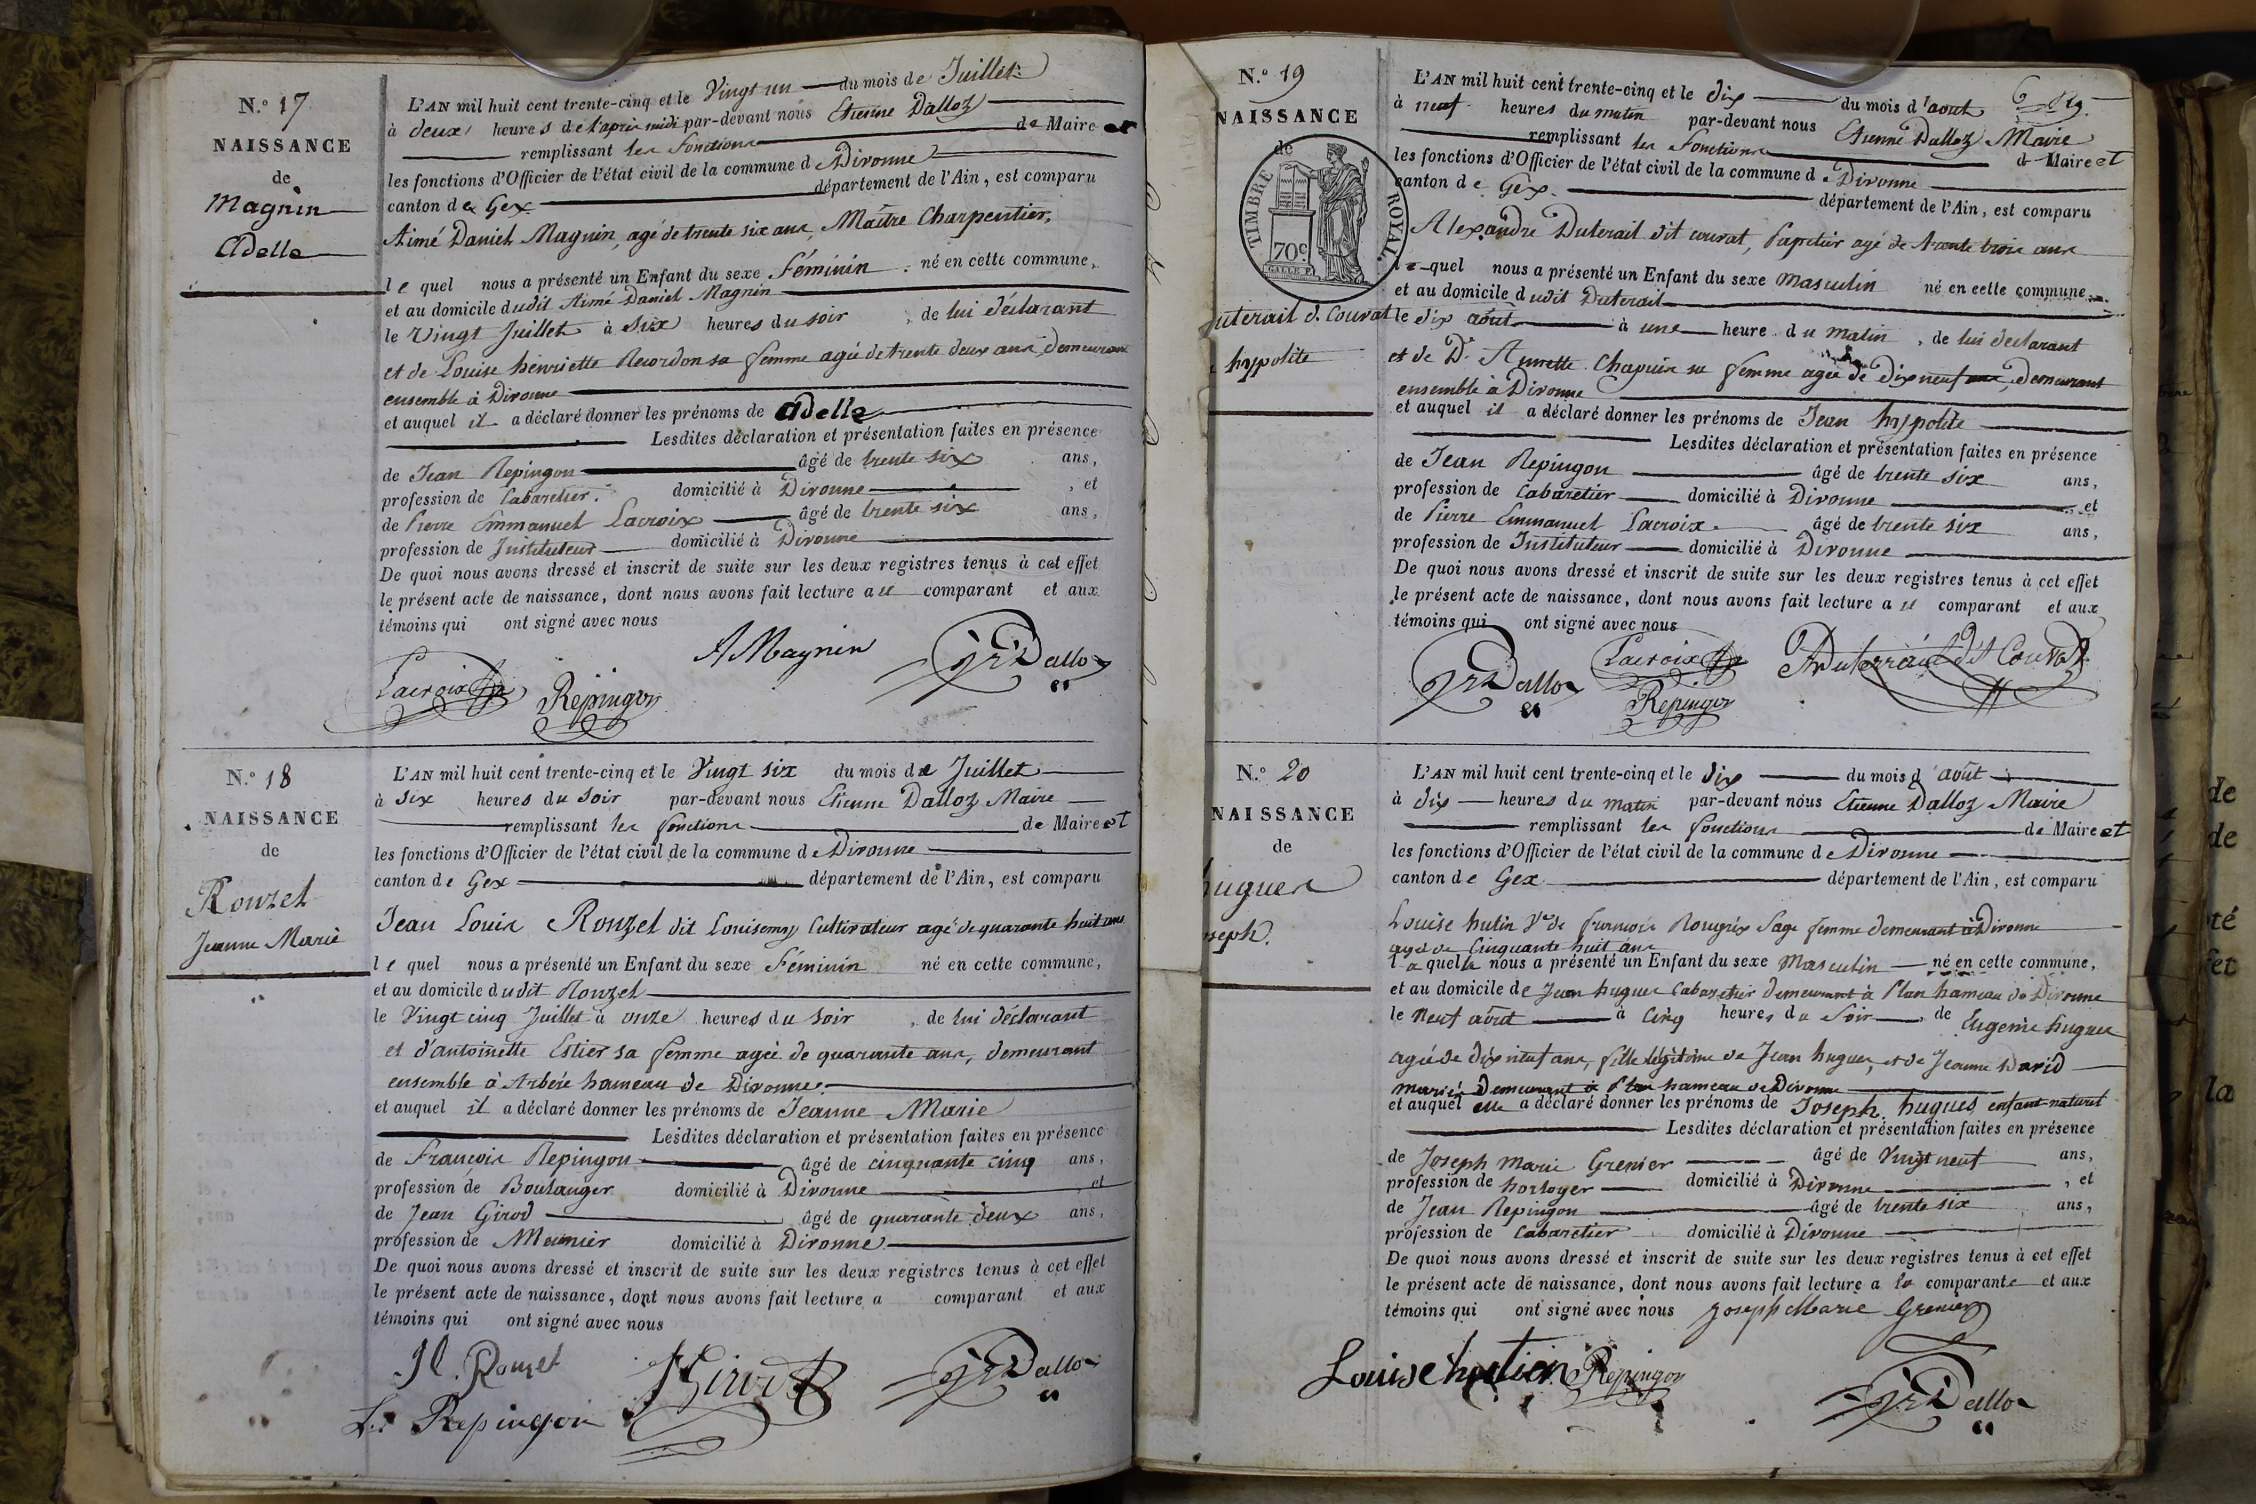 N.° 17
NAISSANCE
de
Magnin
Adelle
L'AN mil huit cent trente-cinq et le Vingt un du mois de Juillet
à deux heures de l'après midi par-devant nous Etienne Dalloz
remplissant les fonctions de Maire et
les fonctions d'Officier de l'état civil de la commune de Divonne
canton de Gex département de l'Ain, est comparu
Aimé Daniel Magnin, agé de trente six ans, Maître Charpentier,
lequel nous a présenté un Enfant du sexe Féminin né en cette commune,
et au domicile dudit Aimé Daniel Magnin
le Vingt Juillet à Six heures du soir, de lui déclarant
et de Louise henriette Recordon sa femme agée de trente deux ans, demeurant
ensemble à Divonne
et auquel il a déclaré donner les prénoms de Adelle
Lesdites déclaration et présentation faites en présence
de Jean Repingon âgé de trente six ans,
profession de Cabaretier domicilié à Divonne, et
de Pierre Emmanuel Lacroix âgé de trente six ans,
profession de Instituteur domicilié à Divonne
De quoi nous avons dressé et inscrit de suite sur les deux registres tenus à cet effet
le présent acte de naissance, dont nous avons fait lecture au comparant et aux
témoins qui ont signé avec nous
A Magnin Dalloz
Lacroix Repingon
N.° 18
NAISSANCE
de
Rouzet
Jeanne Marie
L'AN mil huit cent trente-cinq et le Vingt six du mois de Juillet
à six heures du soir par-devant nous Etienne Dalloz Maire
remplissant les fonctions de Maire et
les fonctions d'Officier de l'état civil de la commune de Divonne
canton de Gex département de l'Ain, est comparu
Jean Louis Rouzet dit Cultivateur agé de quarante huit ans
lequel nous a présenté un Enfant du sexe Féminin né en cette commune,
et au domicile dudit Rouzet
le Vingt cinq Juillet à onze heures du soir, de lui déclarant
et d'antoinette Estier sa femme agée de quarante ans, demeurant
ensemble à Arbère hameau de Divonne
et auquel il a déclaré donner les prénoms de Jeanne Marie
Lesdites déclaration et présentation faites en présence
de François Repingon âgé de cinquante cinq ans,
profession de Boulanger domicilié à Divonne, et
de Jean Girod âgé de quarante deux ans,
profession de Meunier domicilié à Divonne
De quoi nous avons dressé et inscrit de suite sur les deux registres tenus à cet effet
le présent acte de naissance, dont nous avons fait lecture a comparant et aux
témoins qui ont signé avec nous
Jl. Rouzet Girod Dalloz
Repingon
N.° 19
NAISSANCE
de
TIMBRE ROYAL
70c
uterait d. Couvat
hypolite
L'AN mil huit cent trente-cinq et le dix du mois d'aout
à neuf heures du matin par-devant nous Etienne Dalloz Maire
remplissant les fonctions de Maire et
les fonctions d'Officier de l'état civil de la commune de Divonne
canton de Gex département de l'Ain, est comparu
Alexandre Duterait dit couvat, Papetier agé de trente trois ans
lequel nous a présenté un Enfant du sexe masculin né en cette commune
et au domicile dudit Duterait
le dix août à une heure du matin, de lui déclarant
et de De. Annette Chapuis sa femme agée de dix neuf ans, demeurant
ensemble à Divonne
et auquel il a déclaré donner les prénoms de Jean hypolite
Lesdites déclaration et présentation faites en présence
de Jean Repingon âgé de trente six ans,
profession de Cabaretier domicilié à Divonne et
de Pierre Emmanuel Lacroix âgé de trente six ans,
profession de Instituteur domicilié à Divonne
De quoi nous avons dressé et inscrit de suite sur les deux registres tenus à cet effet
le présent acte de naissance, dont nous avons fait lecture au comparant et aux
témoins qui ont signé avec nous
Dalloz Lacroix Duterrait dit Couvat
Repingon
N.° 20
NAISSANCE
de
hugues
oseph.
L'AN mil huit cent trente-cinq et le dix du mois d'août
à dix heures du matin par-devant nous Etienne Dalloz Maire
remplissant les fonctions de Maire et
les fonctions d'Officier de l'état civil de la commune de Divonne
canton de Gex département de l'Ain, est comparu
Louise hutin Ve. de francois Sage femme demeurant à Divonne
agée de Cinquante huit ans
laquelle nous a présenté un Enfant du sexe masculin né en cette commune,
et au domicile de Jean hugues Cabaretier demeurant à Plan hameau de Divonne
le neuf août à cinq heures du soir, de Eugenie hugues
agée de dix neuf ans, fille légitime de Jean hugues, et de Jeanne David
mariés demeurant à Plan hameau de Divonne
et auquel elle a déclaré donner les prénoms de Joseph hugues enfant naturel
Lesdites déclaration et présentation faites en présence
de Joseph Marie Grenier âgé de Vingt neuf ans,
profession de horloger domicilié à Divonne, et
de Jean Repingon âgé de trente six ans,
profession de Cabaretier domicilié à Divonne
De quoi nous avons dressé et inscrit de suite sur les deux registres tenus à cet effet
le présent acte de naissance, dont nous avons fait lecture a la comparante et aux
témoins qui ont signé avec nous Joseph Marie Grenier
Louise hutin Repingon Dalloz
de
de
té
et
la